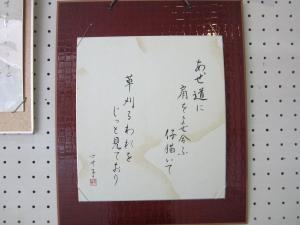 あぜ道に
肩をよせ合ふ
仔猫いて
草刈るわれを
じっと見ており